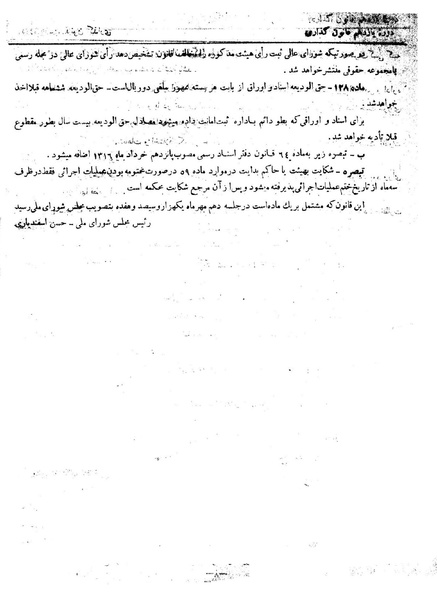 دوره یازدهم قانون گذاری
در صورتیکه شورای عالی ثبت رأی هیئت مذکوره را مخالف قانون تشخیص دهد رأی شورای عالی در مجله رسمی
یا مجموعه حقوقی منتشر خواهد شد .
ماده ۱۳۸- حق الودیعه اسناد و اوراق از بابت هر بسته ممهور ماهی دو ریال است - حق‌الودیعه ششماهه قبلا اخذ
خواهد شد .
برای اسناد و اوراقی که بطور دائم باداره ثبت امانت داده میشود معادل حق الودیعه بیست سال بطور مقطوع
قبلا تأدیه خواهد شد .
ب - تبصره زیر بماده ٦٤ قانون دفتر اسناد رسمی مصوب پانزدهم خرداد ماه ۱۳۱٦ اضافه میشود .
تبصره - شکایت بهیئت یا حاکم بدایت در موارد ماده ٥٩ در صورت مختومه بودن عملیات اجرائی فقط در ظرف
سه ماه از تاریخ ختم عملیات اجرائی پذیرفته میشود و پس از آن مرجع شکایت محکمه است .
این قانون که مشتمل بر یك ماده است در جلسه دهم مهر ماه یکهزار و سیصد و هفده بتصویب مجلس شورای ملی رسید
رئیس مجلس شورای ملی - حسن اسفندیاری
-۸-